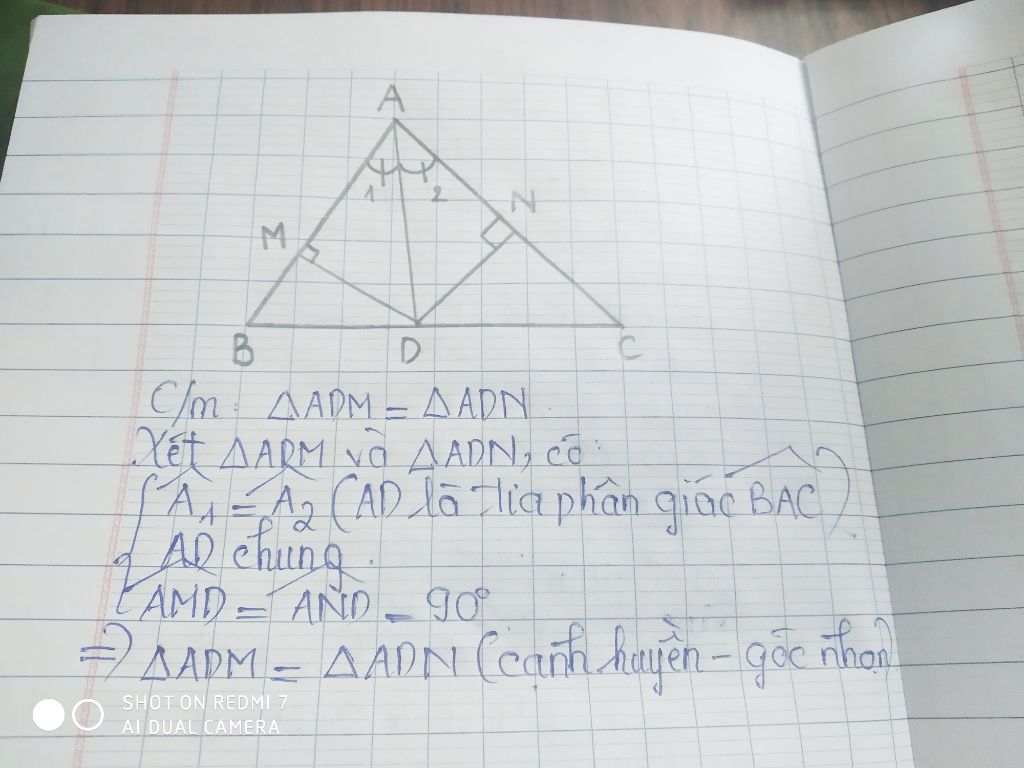 A
1 2
M N
B D C
C/m: △ADM = △ADN
Xét △ADM và △ADN, có:
A₁ = A₂ (AD là tia phân giác BAC)
AD chung.
AMD = AND = 90°
=> △ADM = △ADN (cạnh huyền - góc nhọn)
SHOT ON REDMI 7
AI DUAL CAMERA